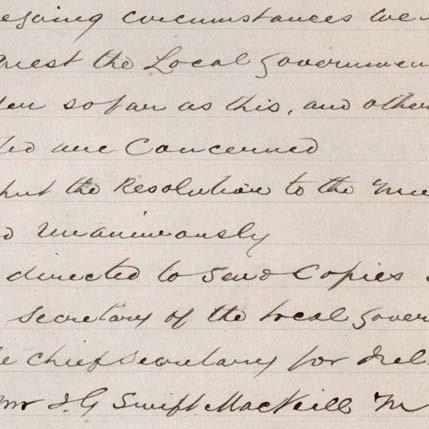 egoing circumstances we
quest the Local Governmen
der so far as this, and other
ted are Concerned
put the Resolution to the mee
d unanimously
directed to send Copies
Secretary of the Local Gover
e chief secretary for Irel
Mr J.G Swift MacNeill M